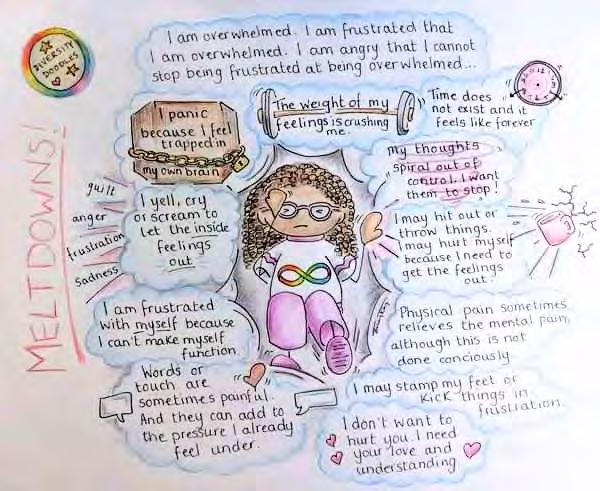 DIVERSITY
DOODLES
I am overwhelmed. I am frustrated that
I am overwhelmed. I am angry that I cannot
stop being frustrated at being overwhelmed...
MELTDOWNS!
I panic
because I feel
trapped in
my own brain
The weight of my
feelings is crushing
me.
Time does
not exist and it
feels like forever
my thoughts
spiral out of
control. I want
them to stop!
guilt
anger
frustration
sadness
I yell, cry
or scream to
let the inside
feelings
out
I may hit out or
throw things.
I may hurt myself
because I need to
get the feelings
out.
I am frustrated
with myself because
I can't make myself
function.
Physical pain sometimes
relieves the mental pain,
although this is not
done conciously.
Words or
touch are
sometimes painful.
And they can add to
the pressure I already
feel under.
I may stamp my feet or
kick things in
frustration.
I don't want to
hurt you. I need
your love and
understanding